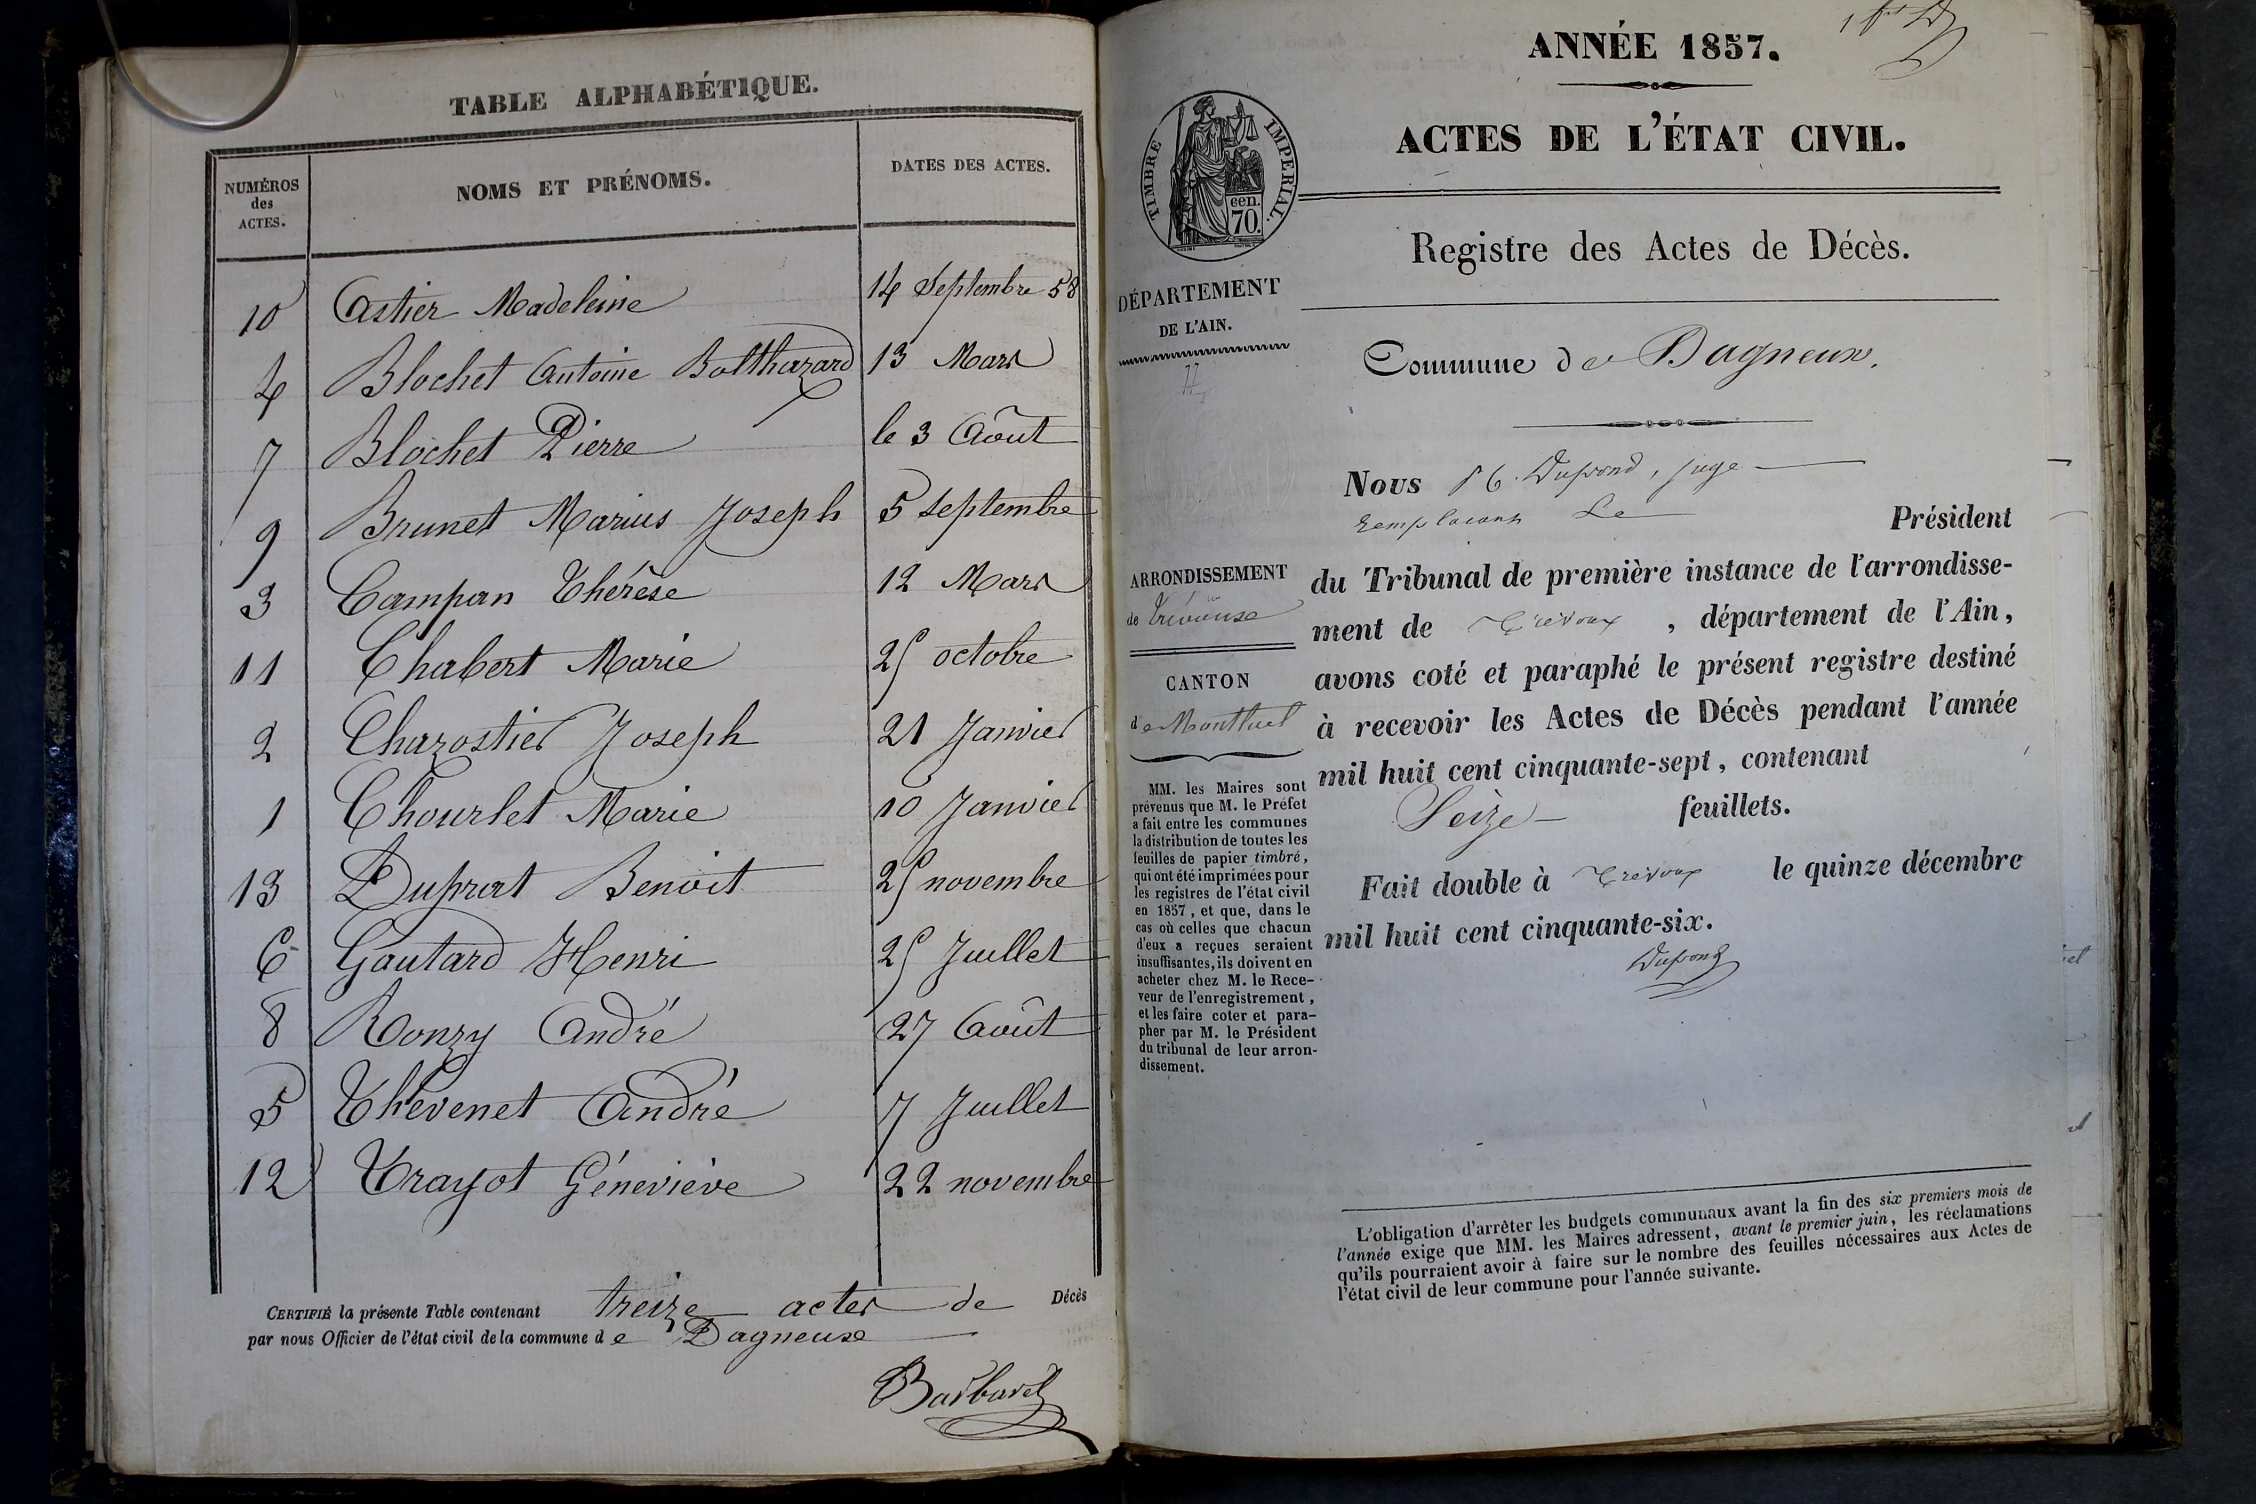 TABLE ALPHABÉTIQUE.
NUMÉROS des ACTES. NOMS ET PRÉNOMS. DATES DES ACTES.
10 Astier Madeleine 14 Septembre 58
4 Blochet Antoine Balthazard 13 Mars
7 Blochet Pierre le 3 Août
9 Brunet Marius Joseph 5 septembre
3 Campan Thérèse 12 Mars
11 Chabert Marie 25 octobre
2 Charostier Joseph 21 Janvier
1 Chourlet Marie 10 Janvier
13 Duprat Benoit 25 novembre
6 Gautard Henri 25 Juillet
8 Ronzy André 27 Août
5 Thévenet André 7 Juillet
12 Trayot Géneviève 22 novembre
CERTIFIÉ la présente Table contenant treize actes de Décès
par nous Officier de l'état civil de la commune de Dagneux
Barbaret
ANNÉE 1857.
ACTES DE L'ÉTAT CIVIL.
TIMBRE IMPERIAL.
cen.
70.
Registre des Actes de Décès.
DÉPARTEMENT
DE L'AIN.
Commune de Dagneux.
Nous Dupond, juge
remplaçant Le Président
du Tribunal de première instance de l'arrondisse-
ment de Trévoux, département de l'Ain,
avons coté et paraphé le présent registre destiné
à recevoir les Actes de Décès pendant l'année
mil huit cent cinquante-sept, contenant
Seize feuillets.
Fait double à Trévoux le quinze décembre
mil huit cent cinquante-six.
Dupond
ARRONDISSEMENT
de
CANTON
de Montluel
MM. les Maires sont
prévenus que M. le Préfet
a fait entre les communes
la distribution de toutes les
feuilles de papier timbré,
qui ont été imprimées pour
les registres de l'état civil
en 1857, et que, dans le
cas où celles que chacun
d'eux a reçues seraient
insuffisantes, ils doivent en
acheter chez M. le Rece-
veur de l'enregistrement,
et les faire coter et para-
pher par M. le Président
du tribunal de leur arron-
dissement.
L'obligation d'arrêter les budgets communaux avant la fin des six premiers mois de
l'année exige que MM. les Maires adressent, avant le premier juin, les réclamations
qu'ils pourraient avoir à faire sur le nombre des feuilles nécessaires aux Actes de
l'état civil de leur commune pour l'année suivante.